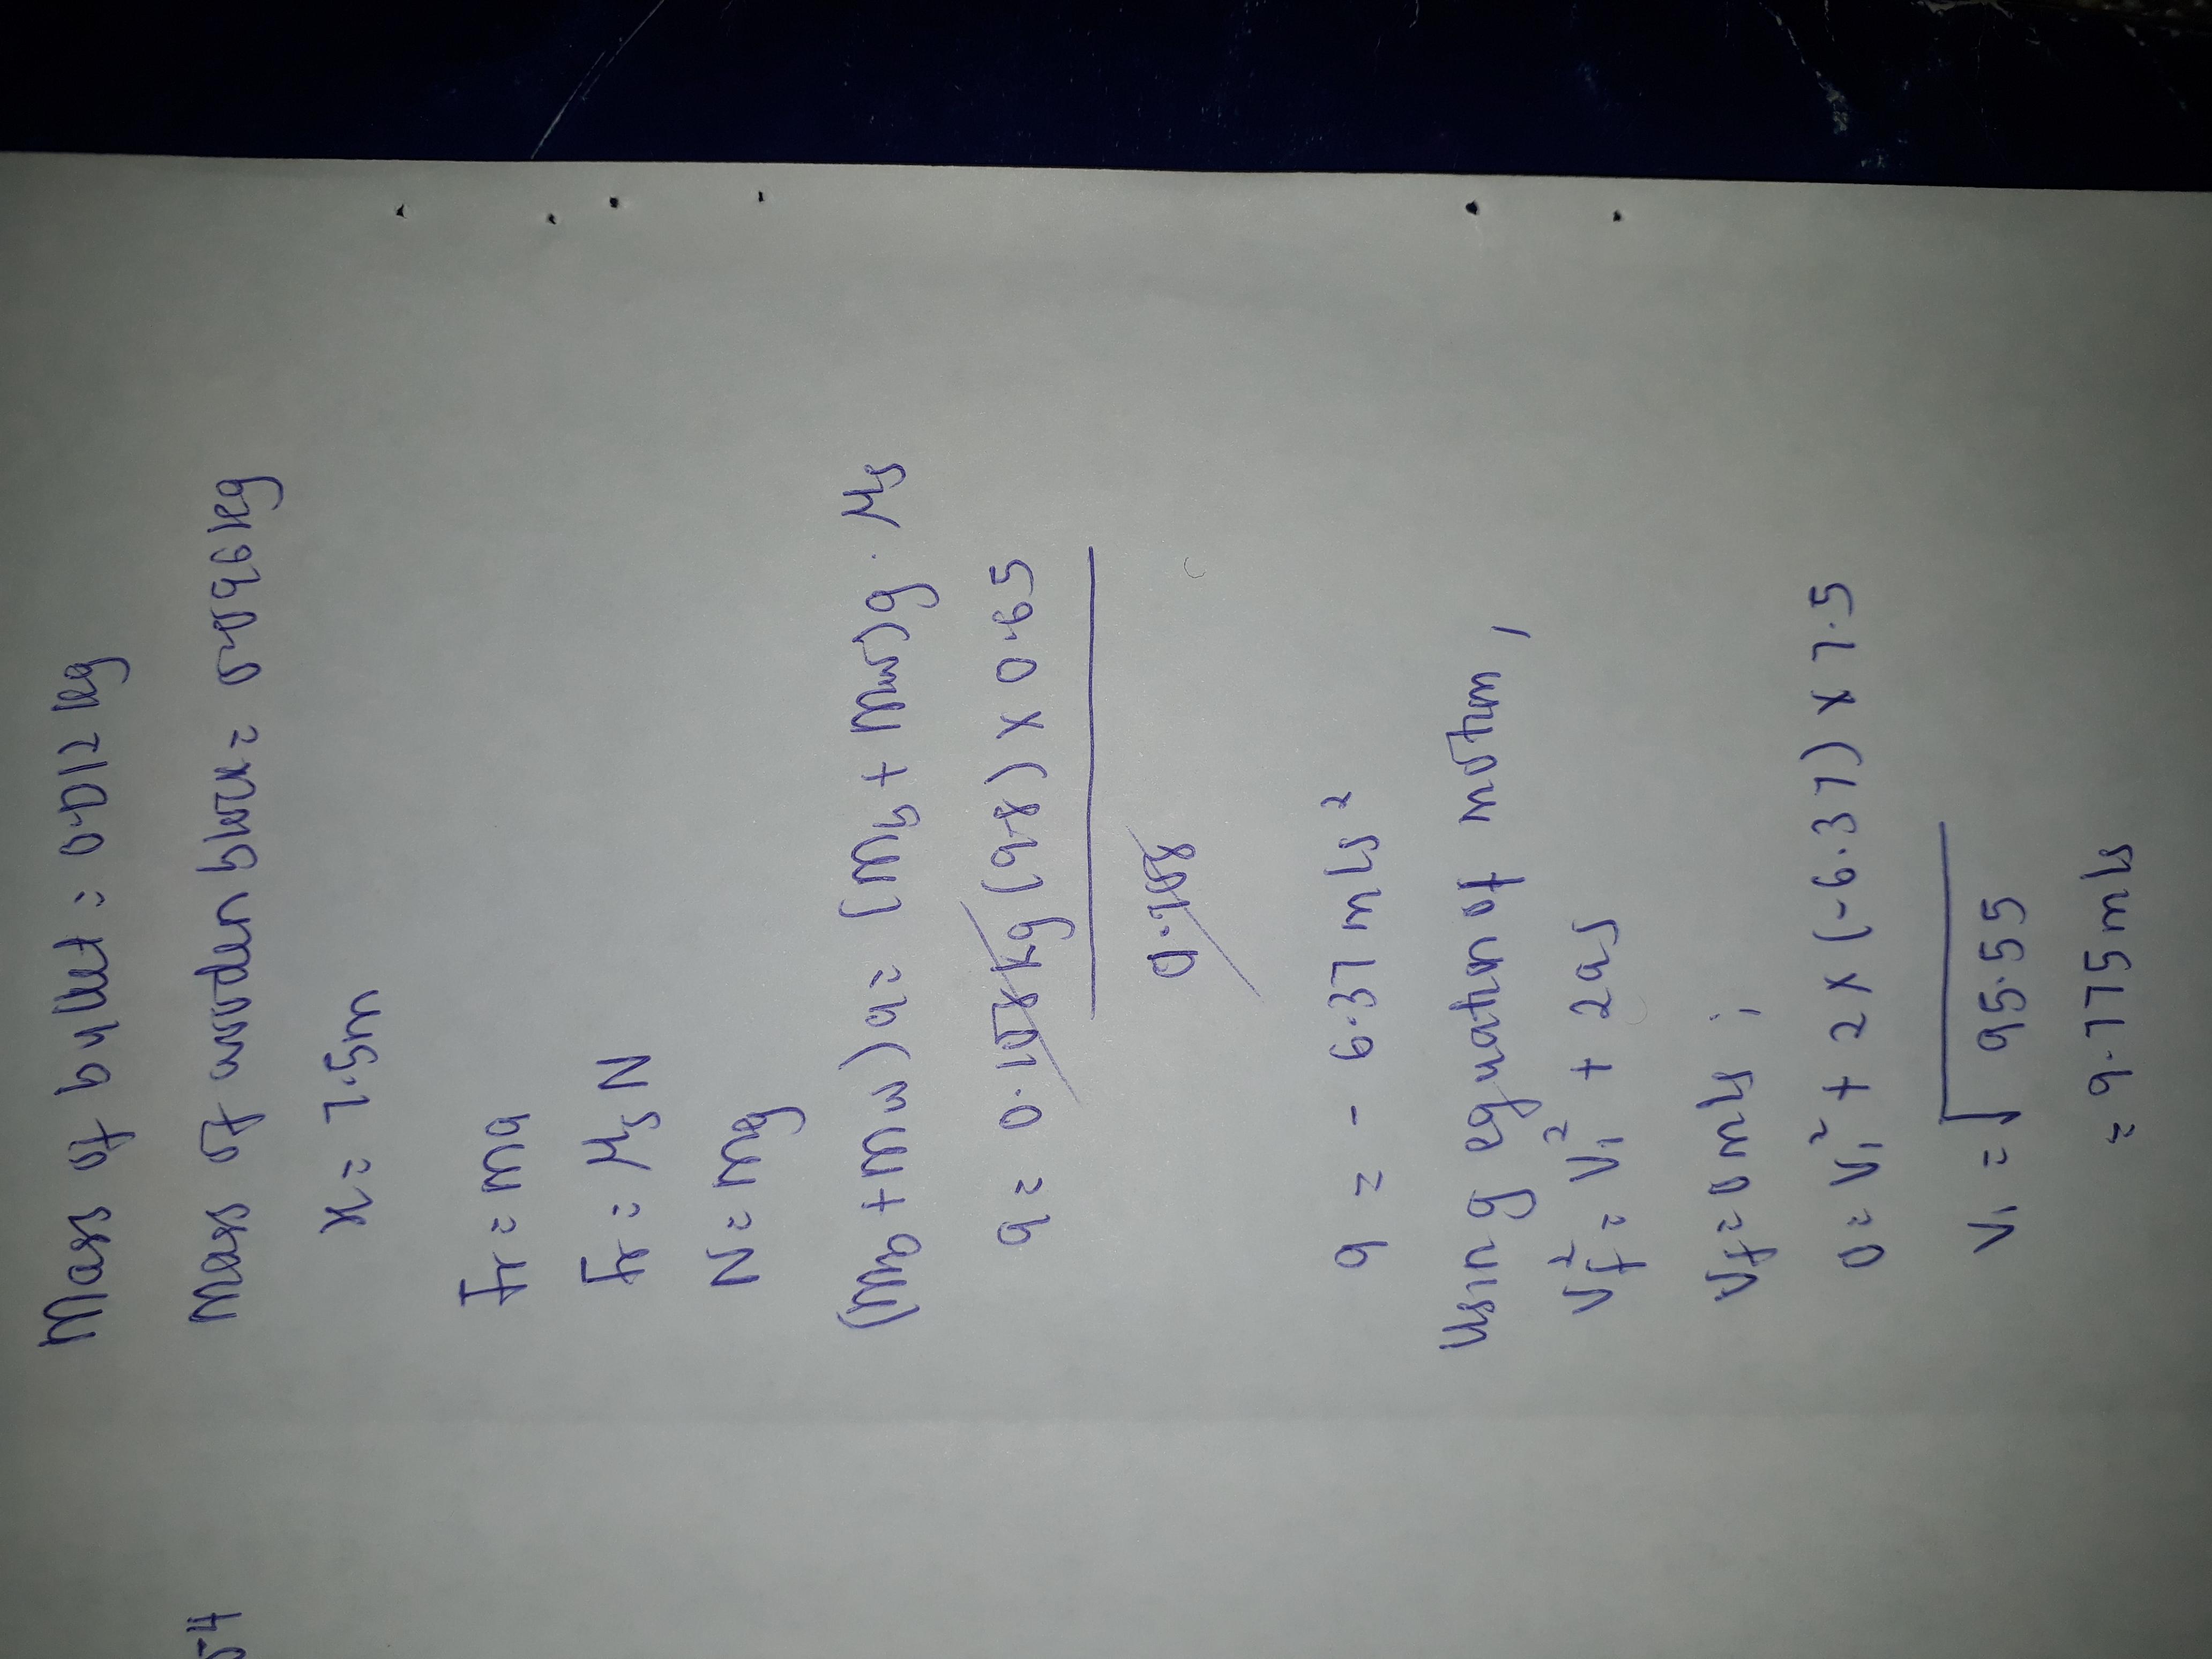 Mass of bullet = 0.012 kg
Mass of wooden block = 0.096kg
x = 7.5m
Fr = ma
Fr = μsN
N = mg
(mb + mw)a = (mb + mw)g . μs
a = 0.108kg(9.8) x 0.65
0.108
a = - 6.37 m/s²
Using equation of motion,
Vf² = V1² + 2as
Vf = 0 m/s ;
0 = V1² + 2 x (-6.37) x 7.5
V1 = √95.55
= 9.775 m/s
54